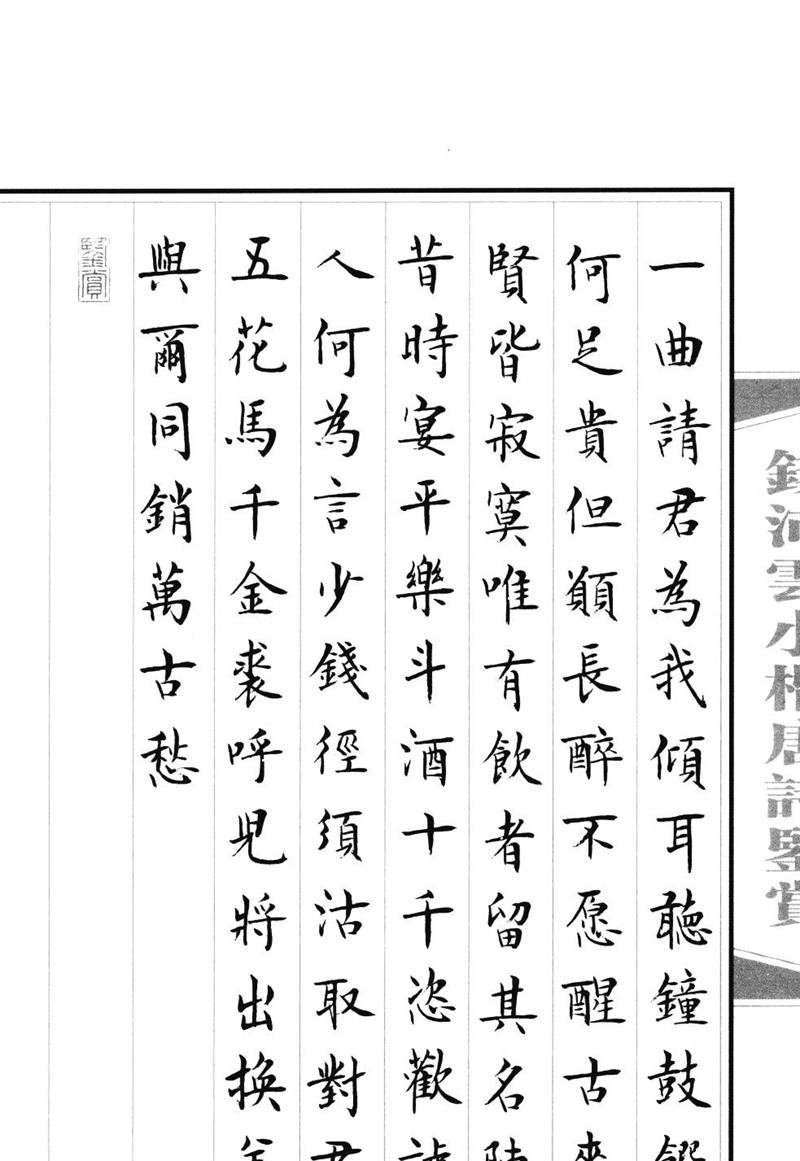 一曲請君為我傾耳聽鐘鼓饌
何足貴但願長醉不愿醒古來
賢皆寂寞唯有飲者留其名陳
昔時宴平樂斗酒十千恣歡謔
人何為言少錢徑須沽取對君
五花馬千金裘呼兒將出換美
與爾同銷萬古愁
鑒賞
河雲小楷唐詩鑒賞